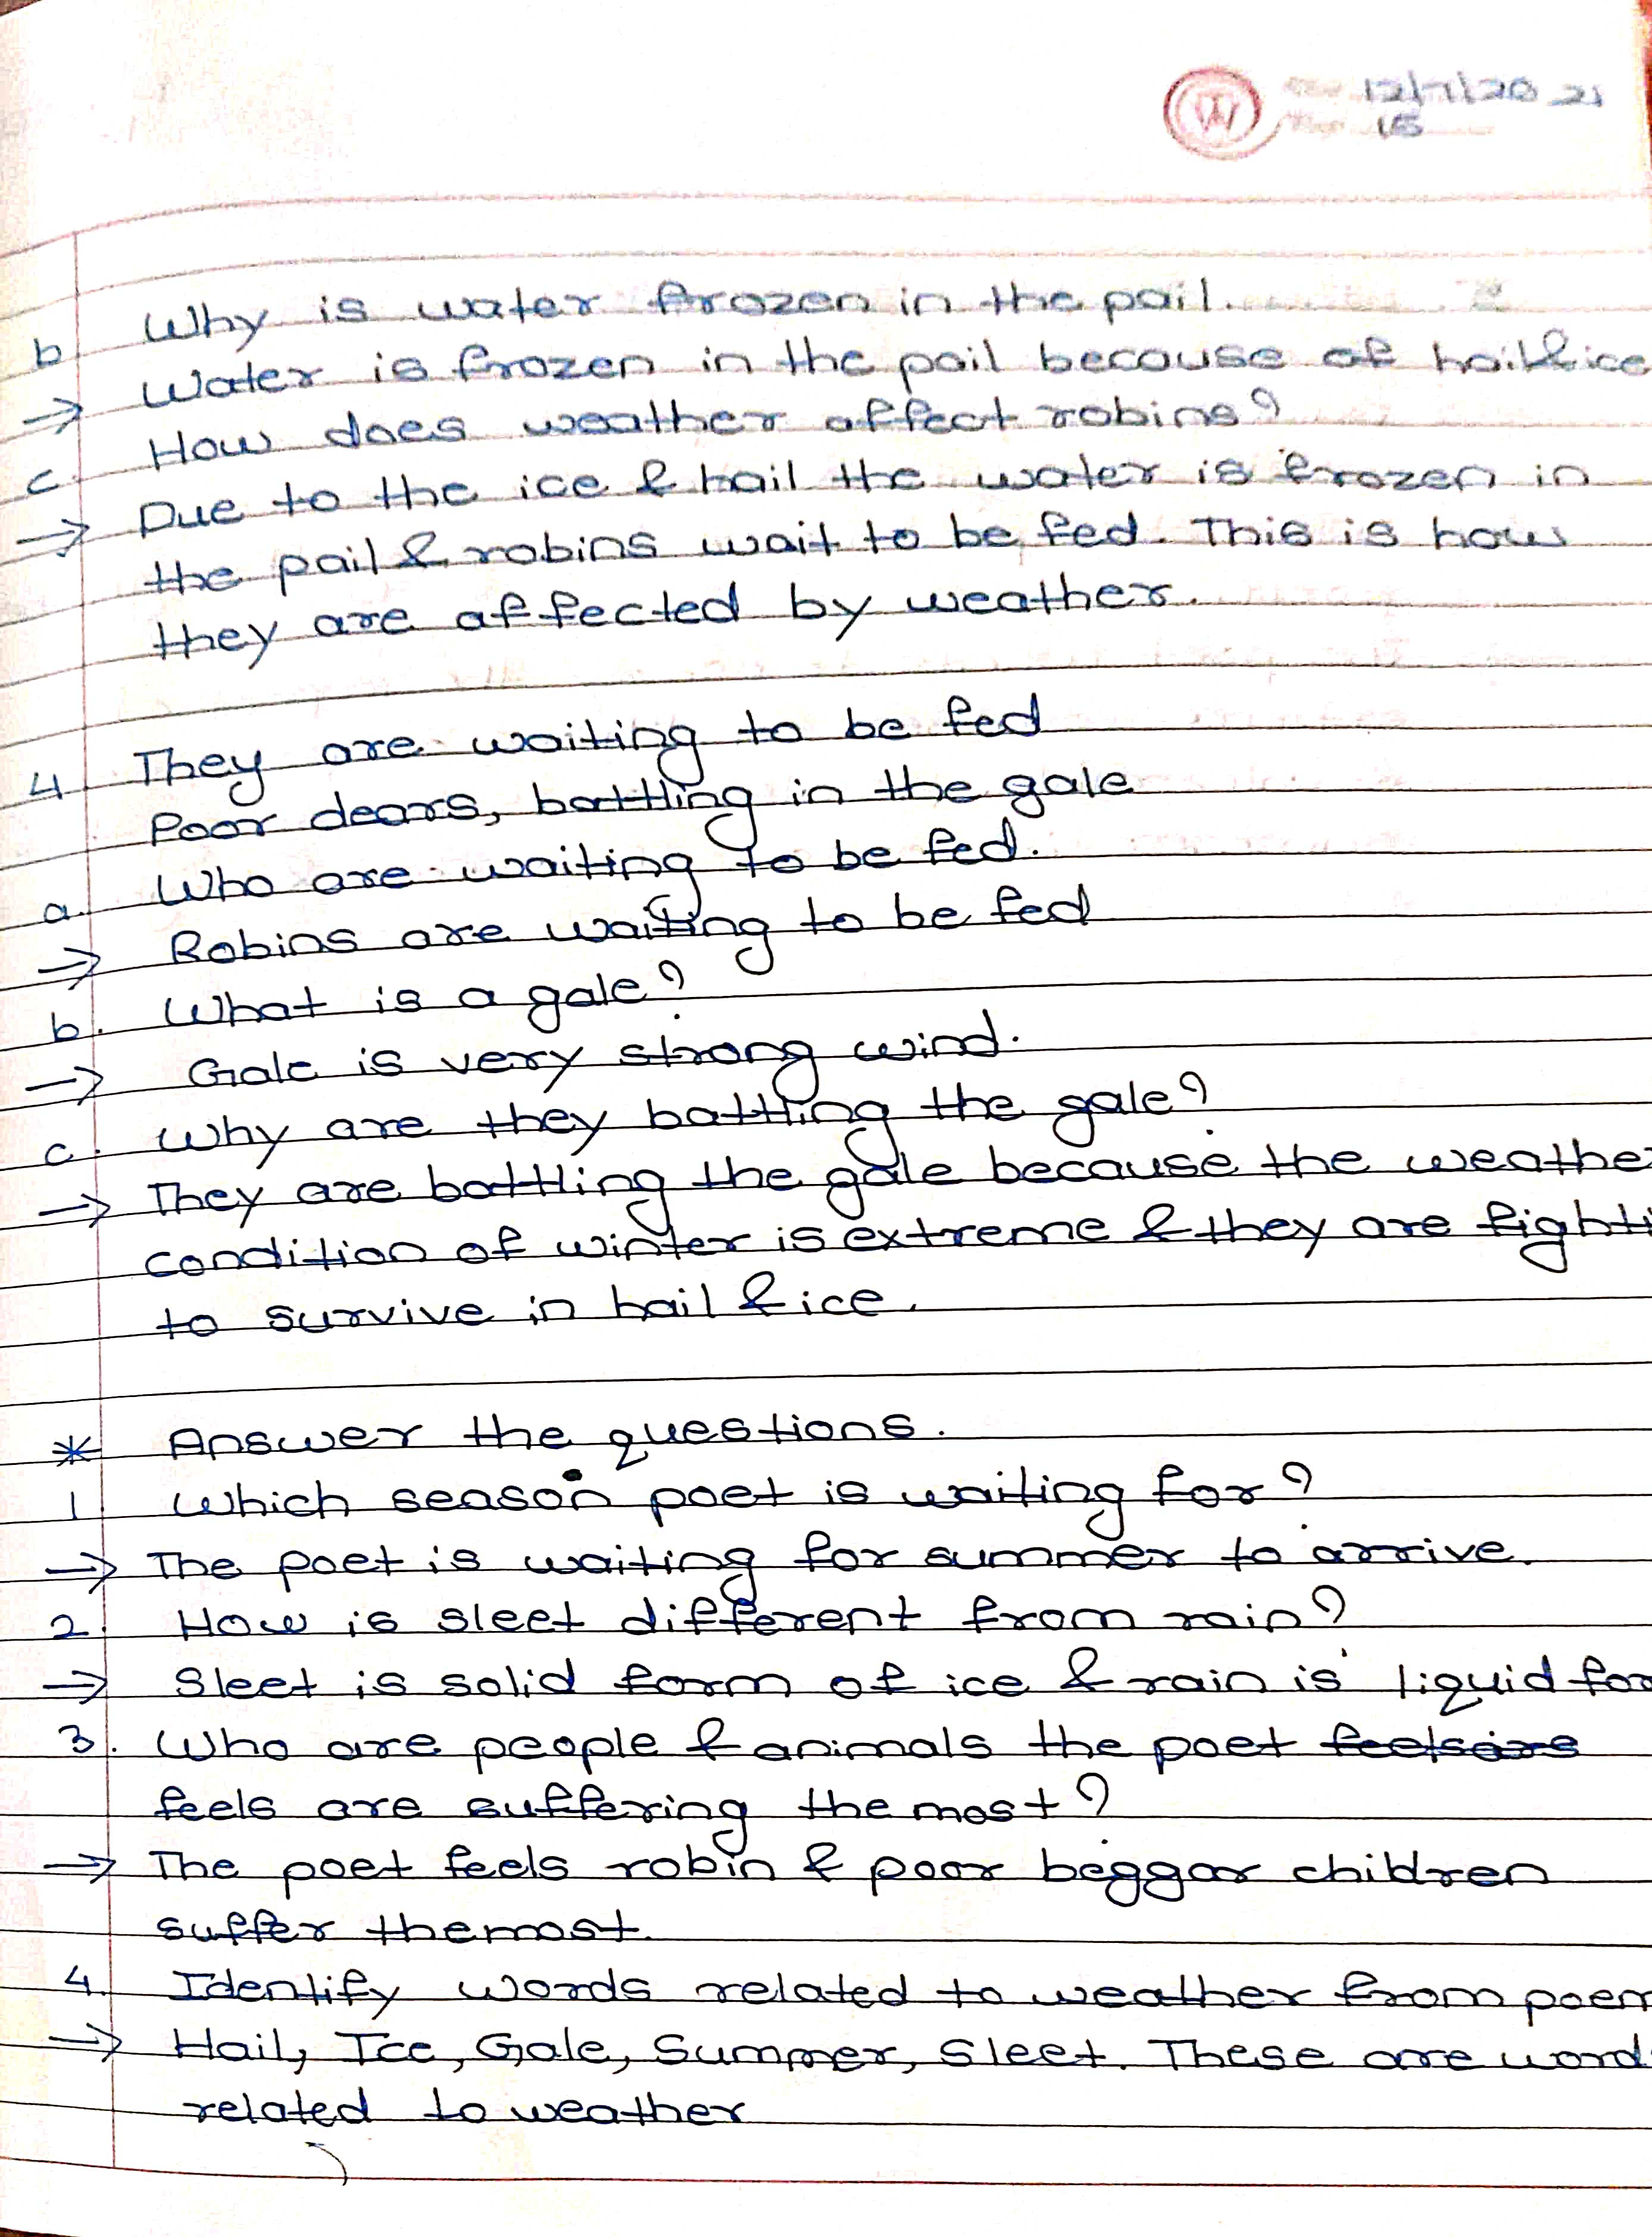 12/7/2021
15
b Why is water frozen in the pail.
⇒ Water is frozen in the pail because of hail&ice
c. How does weather affect robins?
⇒ Due to the ice & hail the water is frozen in
the pail & robins wait to be fed. This is how
they are affected by weather.
4 They are waiting to be fed
Poor dears, battling in the gale
a. Who are waiting to be fed.
⇒ Robins are waiting to be fed
b. What is a gale?
⇒ Gale is very strong wind.
c. Why are they battling the gale?
⇒ They are battling the gale because the weathe
condition of winter is extreme & they are fighti
to survive in hail & ice.
* Answer the questions.
1 Which season poet is waiting for?
⇒ The poet is waiting for summer to arrive.
2. How is sleet different from rain?
⇒ Sleet is solid form of ice & rain is liquid for
3. Who are people & animals the poet
feels are suffering the most?
⇒ The poet feels robin & poor beggar children
suffer the most.
4. Identify words related to weather from poem
⇒ Hail, Ice, Gale, Summer, Sleet. These are word
related to weather